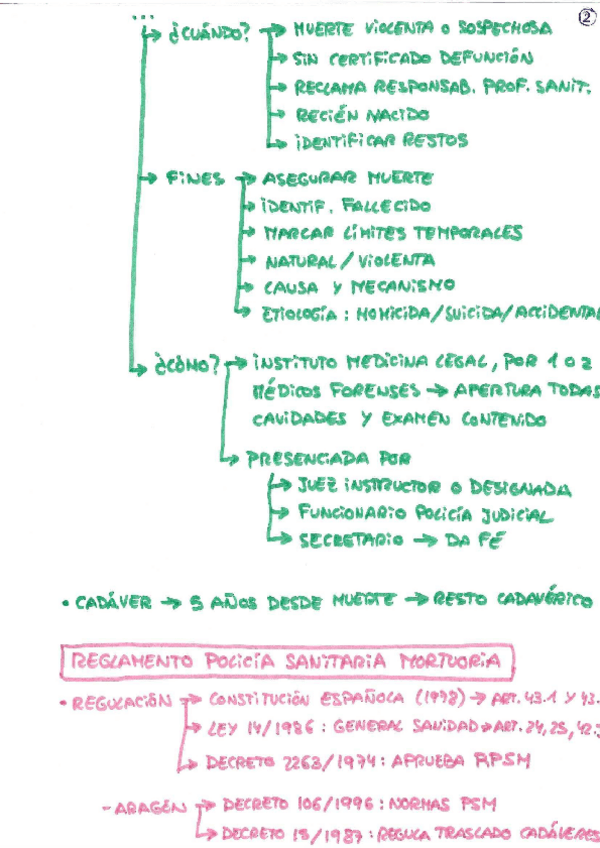 ②
...
¿CUÁNDO? → MUERTE VIOLENTA O SOSPECHOSA
→ SIN CERTIFICADO DEFUNCIÓN
→ RECLAMA RESPONSAB. PROF. SANIT.
→ RECIÉN NACIDO
→ IDENTIFICAR RESTOS
→ FINES → ASEGURAR MUERTE
→ IDENTIF. FALLECIDO
→ MARCAR LÍMITES TEMPORALES
→ NATURAL/VIOLENTA
→ CAUSA Y MECANISMO
→ ETIOLOGÍA: HOMICIDA/SUICIDA/ACCIDENTAL
→ ¿CÓMO? → INSTITUTO MEDICINA LEGAL, POR 1 O 2
MÉDICOS FORENSES → APERTURA TODAS
CAVIDADES Y EXAMEN CONTENIDO
→ PRESENCIADA POR
→ JUEZ INSTRUCTOR O DESIGNADA
→ FUNCIONARIO POLICÍA JUDICIAL
→ SECRETARIO → DA FÉ
• CADÁVER → 5 AÑOS DESDE MUERTE → RESTO CADAVÉRICO
REGLAMENTO POLICÍA SANITARIA MORTUORIA
• REGULACIÓN → CONSTITUCIÓN ESPAÑOLA (1978) → ART. 43.1 Y 43.
→ LEY 14/1986: GENERAL SANIDAD → ART. 24, 25, 42.
→ DECRETO 2263/1974: APRUEBA RPSM
- ARAGÓN → DECRETO 106/1996: NORMAS PSM
→ DECRETO 15/1987: REGULA TRASLADO CADÁVERES